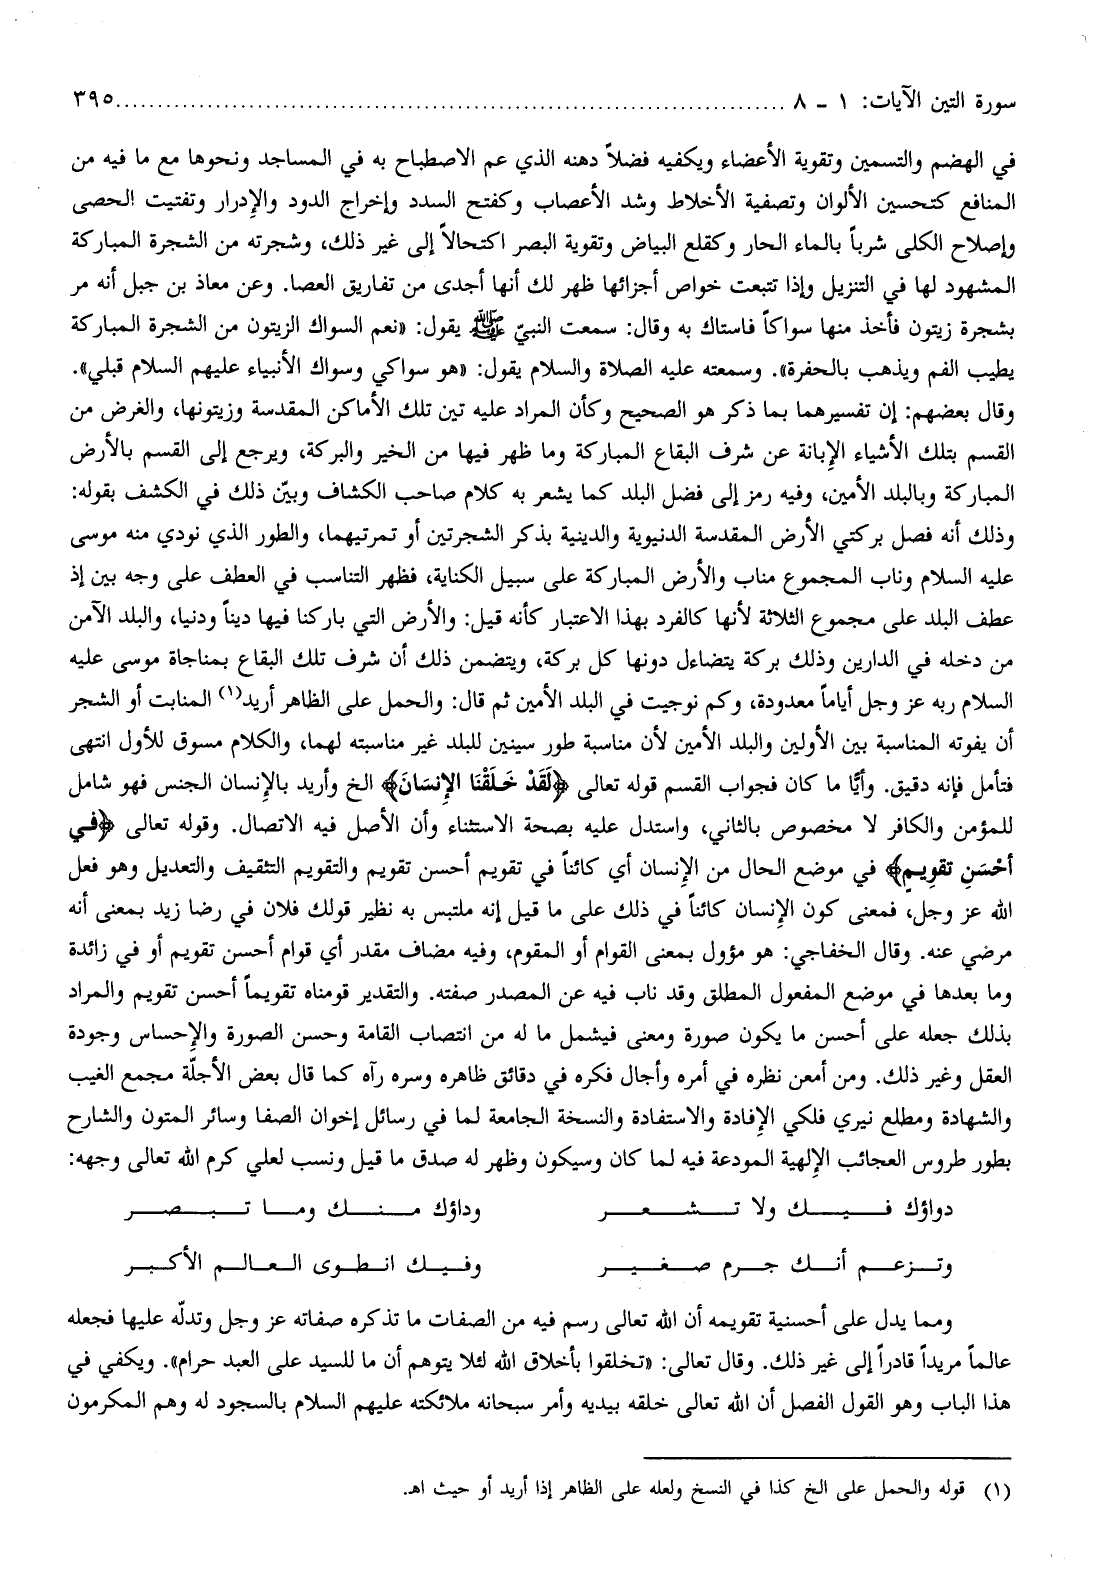 سورة التين الآيات: ١ - ٨ ........................................ ٣٩٥
في الهضم والتسمين وتقوية الأعضاء ويكفيه فضلاً دهنه الذي عم الاصطباح به في المساجد ونحوها مع ما فيه من
المنافع كتحسين الألوان وتصفية الأخلاط وشد الأعصاب وكفتح السدد وإخراج الدود والإدرار وتفتيت الحصى
وإصلاح الكلى شرباً بالماء الحار وكقلع البياض وتقوية البصر اكتحالاً إلى غير ذلك، وشجرته من الشجرة المباركة
المشهود لها في التنزيل وإذا تتبعت خواص أجزائها ظهر لك أنها أجدى من تفاريق العصا. وعن معاذ بن جبل أنه مر
بشجرة زيتون فأخذ منها سواكاً فاستاك به وقال: سمعت النبيّ ﷺ يقول: «نعم السواك الزيتون من الشجرة المباركة
يطيب الفم ويذهب بالحفرة». وسمعته عليه الصلاة والسلام يقول: «هو سواكي وسواك الأنبياء عليهم السلام قبلي».
وقال بعضهم: إن تفسيرهما بما ذكر هو الصحيح وكأن المراد عليه تين تلك الأماكن المقدسة وزيتونها، والغرض من
القسم بتلك الأشياء الإبانة عن شرف البقاع المباركة وما ظهر فيها من الخير والبركة، ويرجع إلى القسم بالأرض
المباركة وبالبلد الأمين، وفيه رمز إلى فضل البلد كما يشعر به كلام صاحب الكشاف وبيّن ذلك في الكشف بقوله:
وذلك أنه فصل بركتي الأرض المقدسة الدنيوية والدينية بذكر الشجرتين أو تمرتيهما، والطور الذي نودي منه موسى
عليه السلام وناب المجموع مناب والأرض المباركة على سبيل الكناية، فظهر التناسب في العطف على وجه بين إذ
عطف البلد على مجموع الثلاثة لأنها كالفرد بهذا الاعتبار كأنه قيل: والأرض التي باركنا فيها ديناً ودنيا، والبلد الآمن
من دخله في الدارين وذلك بركة يتضاءل دونها كل بركة، ويتضمن ذلك أن شرف تلك البقاع بمناجاة موسى عليه
السلام ربه عز وجل أياماً معدودة، وكم نوجيت في البلد الأمين ثم قال: والحمل على الظاهر أريد(١) المنابت أو الشجر
أن يفوته المناسبة بين الأولين والبلد الأمين لأن مناسبة طور سينين للبلد غير مناسبته لهما، والكلام مسوق للأول انتهى
فتأمل فإنه دقيق. وأيًّا ما كان فجواب القسم قوله تعالى ﴿لَقَدْ خَلَقْنَا الإِنسَانَ﴾ الخ وأريد بالإنسان الجنس فهو شامل
للمؤمن والكافر لا مخصوص بالثاني، واستدل عليه بصحة الاستثناء وأن الأصل فيه الاتصال. وقوله تعالى ﴿فِي
أَحْسَنِ تقوِيمٍ﴾ في موضع الحال من الإنسان أي كائناً في تقويم أحسن تقويم والتقويم التثقيف والتعديل وهو فعل
الله عز وجل، فمعنى كون الإنسان كائناً في ذلك على ما قيل إنه ملتبس به نظير قولك فلان في رضا زيد بمعنى أنه
مرضي عنه. وقال الخفاجي: هو مؤول بمعنى القوام أو المقوم، وفيه مضاف مقدر أي قوام أحسن تقويم أو في زائدة
وما بعدها في موضع المفعول المطلق وقد ناب فيه عن المصدر صفته. والتقدير قومناه تقويماً أحسن تقويم والمراد
بذلك جعله على أحسن ما يكون صورة ومعنى فيشمل ما له من انتصاب القامة وحسن الصورة والإحساس وجودة
العقل وغير ذلك. ومن أمعن نظره في أمره وأجال فكره في دقائق ظاهره وسره رآه كما قال بعض الأجلّة مجمع الغيب
والشهادة ومطلع نيري فلكي الإفادة والاستفادة والنسخة الجامعة لما في رسائل إخوان الصفا وسائر المتون والشارح
بطور طروس العجائب الإلهية المودعة فيه لما كان وسيكون وظهر له صدق ما قيل ونسب لعلي كرم الله تعالى وجهه:
دواؤك فيك ولا تشعر وداؤك منك وما تبصر
وتزعم أنك جرم صغير وفيك انطوى العالم الأكبر
ومما يدل على أحسنية تقويمه أن الله تعالى رسم فيه من الصفات ما تذكره صفاته عز وجل وتدلّه عليها فجعله
عالماً مريداً قادراً إلى غير ذلك. وقال تعالى: «تخلقوا بأخلاق الله لئلا يتوهم أن ما للسيد على العبد حرام». ويكفي في
هذا الباب وهو القول الفصل أن الله تعالى خلقه بيديه وأمر سبحانه ملائكته عليهم السلام بالسجود له وهم المكرمون
(١) قوله والحمل على الخ كذا في النسخ ولعله على الظاهر إذا أريد أو حيث اهـ.